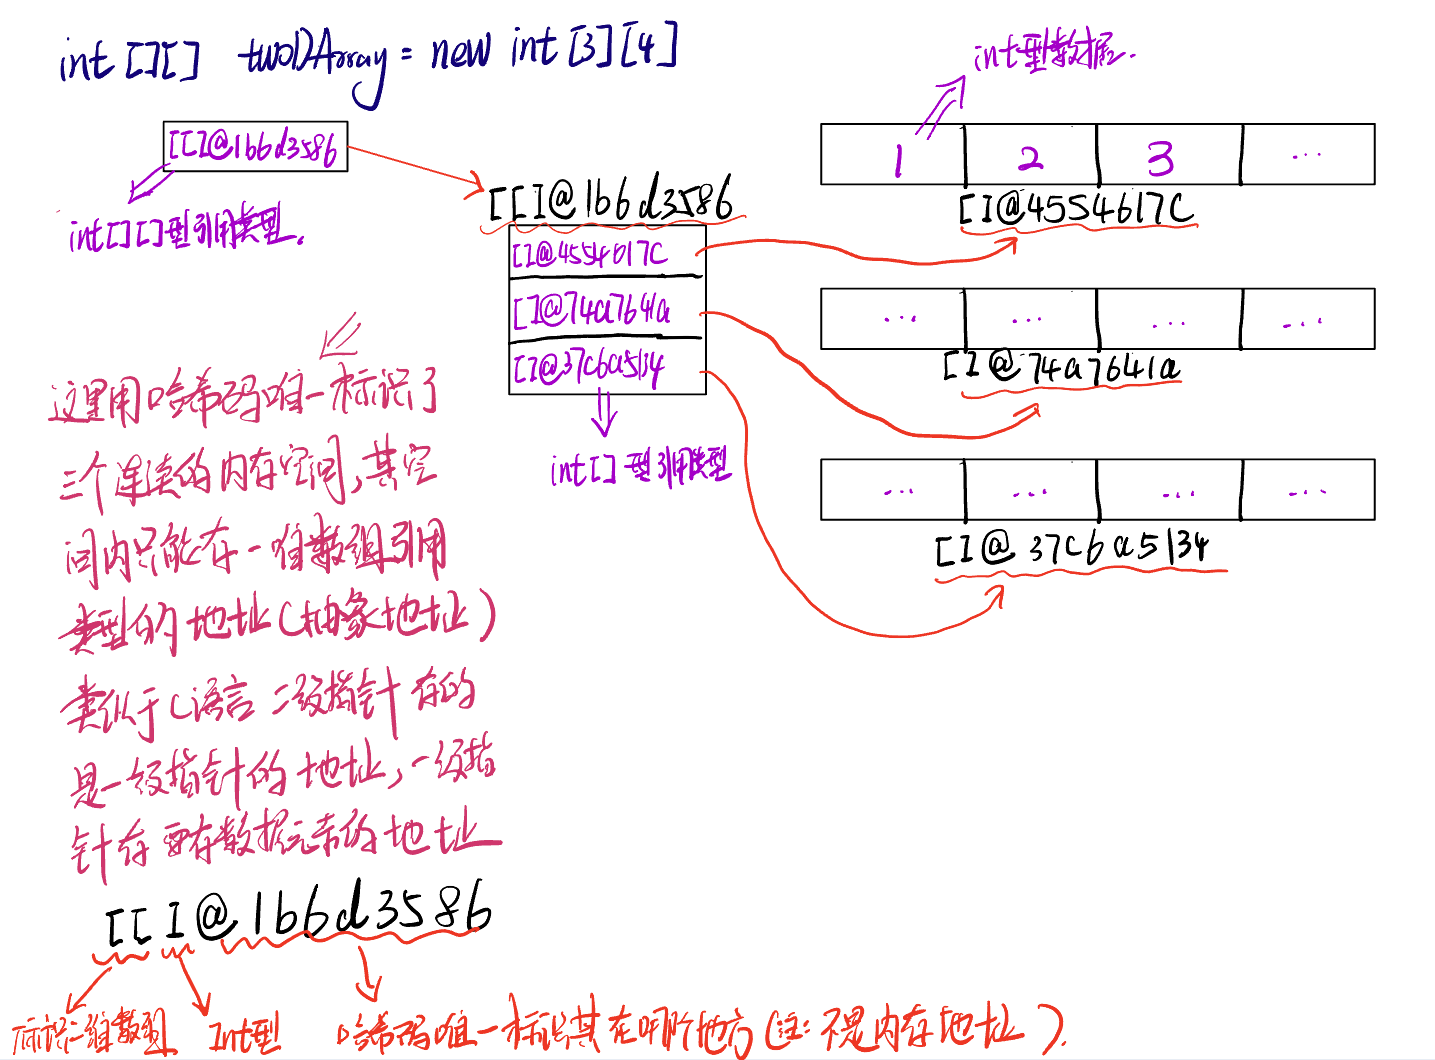 int [][] twoDArray = new int [3][4]
int型数据.
[[I@1bbd3586
int[][]型引用类型.
[[I@1bbd3586
[I@4554617C
[I@74a7641a
[I@37c6a5134
int[] 型引用类型
1 2 3 ...
[I@4554617C
... ... ... ...
[I@74a7641a
... ... ... ...
[I@37c6a5134
这里用哈希码唯一标识了
三个连续的内存空间,其空
间内只能存一维数组引用
类型的地址(抽象地址)
类似于C语言 二级指针存的
是一级指针的地址,一级指
针存要存数据元素的地址
[[I@1bbd3586
标识二维数组 Int型 哈希码唯一标识其在哪个地方(注:不是内存地址).